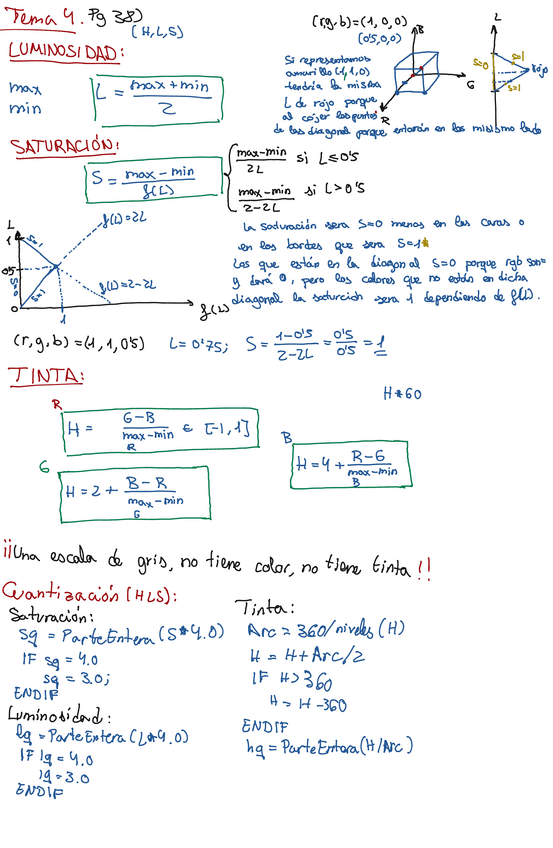 Tema 4. Pg 38)
(H,L,S)
LUMINOSIDAD:
max
min
L = max+min / 2
(r,g,b)=(1,0,0)
(0'5,0,0)
Si representamos
amarillo (1,1,0)
tendría la misma
L de rojo porque
al cojer los puntos
de las diagonal porque entarán en las mismo lado
B
G
R
L
S=0
S=1
S=1
rojo
SATURACIÓN:
S = max-min / f(L)
max-min / 2L si L≤0'5
max-min / 2-2L si L>0'5
L
1
0'5
0
S=1
S=0
S=1
f(L)=2L
f(L)=2-2L
1
f(L)
La saturación sera S=0 menos en las caras o
en los bordes que sera S=1*
Los que están en la diagonal S=0 porque rgb son=
y dará 0, pero los colores que no están en dicha
diagonal la saturción sera 1 dependiendo de f(L).
(r,g,b)=(1,1,0'5) L=0'75; S = 1-0'5 / 2-2L = 0'5 / 0'5 = 1
TINTA:
H*60
R
H = G-B / max-min ∈ [-1,1]
R
B
H=4+ R-G / max-min
B
G
H=2+ B-R / max-min
G
¡¡Una escala de gris, no tiene color, no tiene tinta!!
Cuantización (HLS):
Saturación:
sq = ParteEntera (S*4.0)
IF sq = 4.0
sq = 3.0;
ENDIF
Luminosidad:
lq = ParteEntera (L*4.0)
IF lq = 4.0
lq = 3.0
ENDIF
Tinta:
Arc = 360/niveles (H)
H = H+Arc/2
IF H>360
H = H-360
ENDIF
hq = ParteEntera (H/Arc)